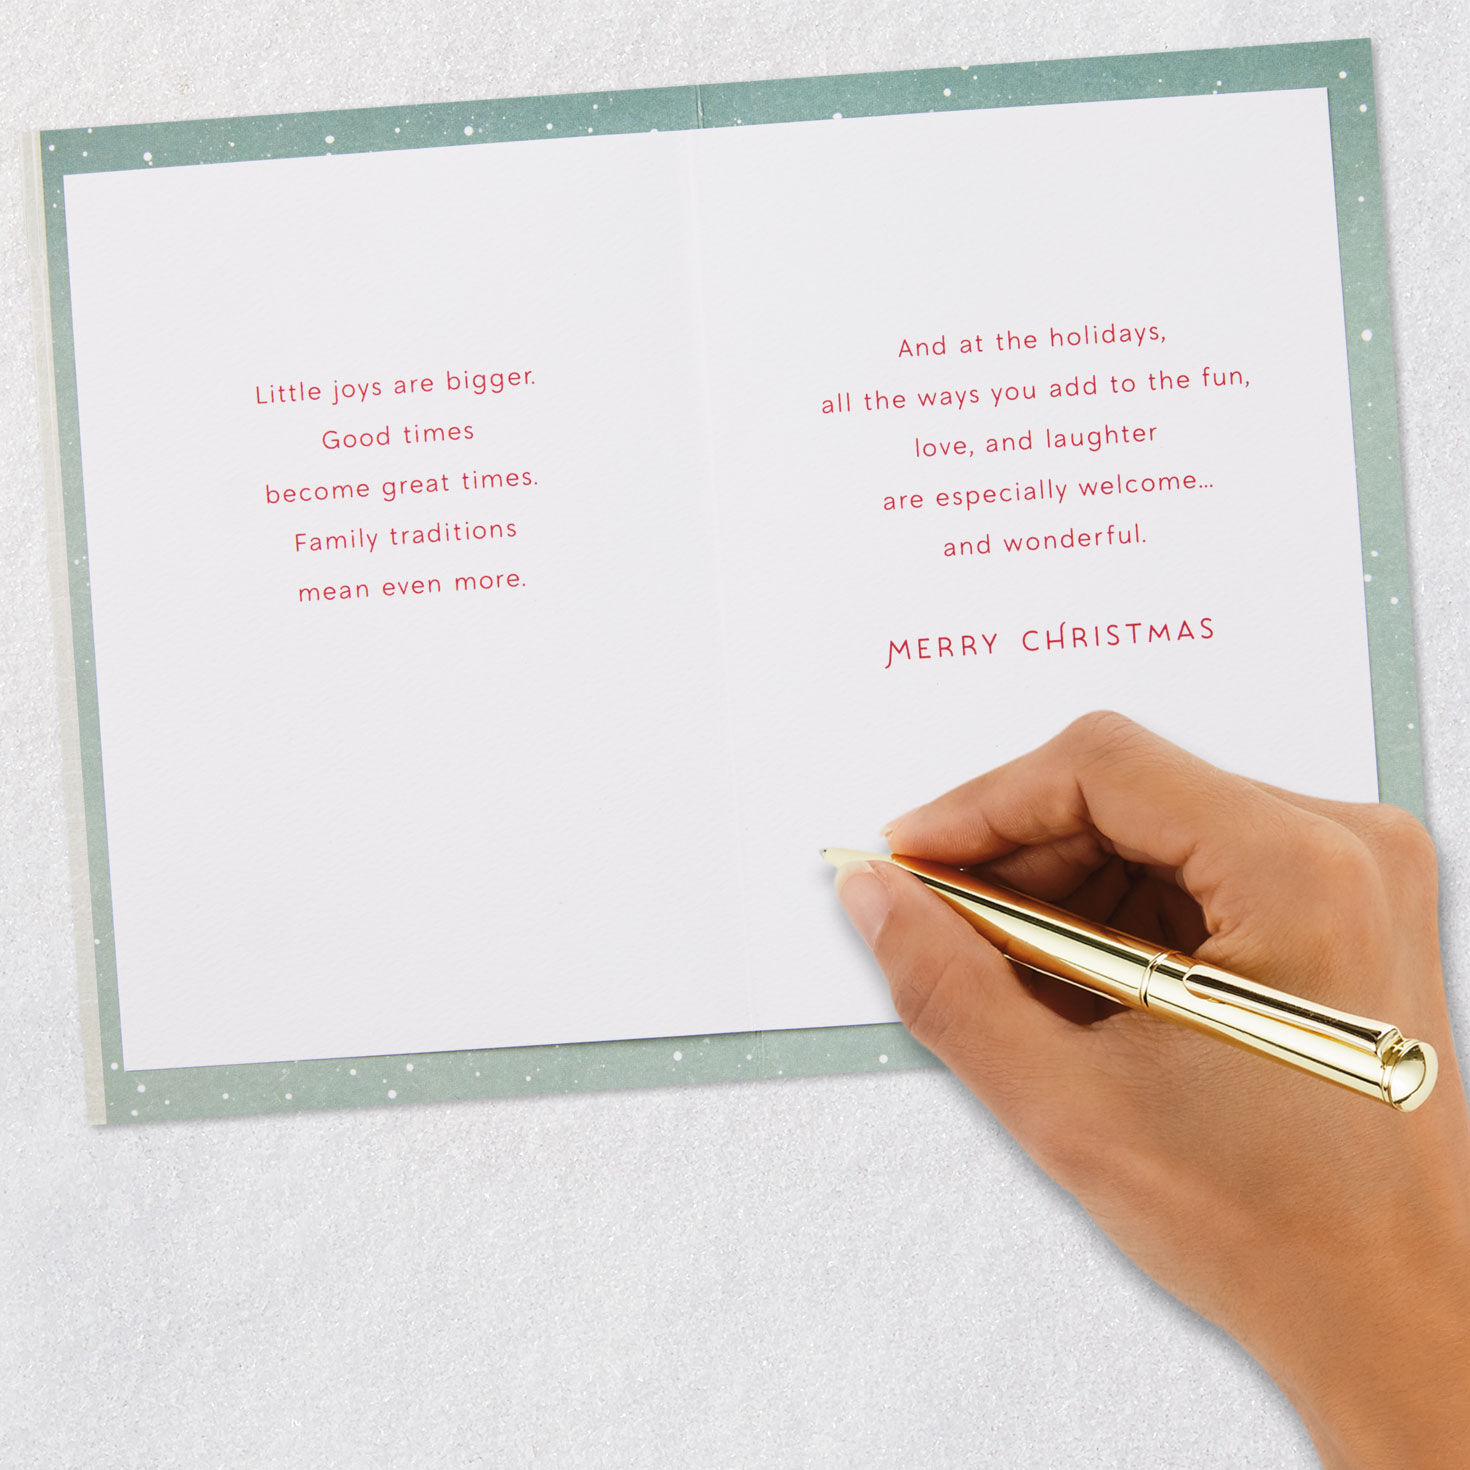 Little joys are bigger.
Good times
become great times.
Family traditions
mean even more.
And at the holidays,
all the ways you add to the fun,
love, and laughter
are especially welcome...
and wonderful.
MERRY CHRISTMAS